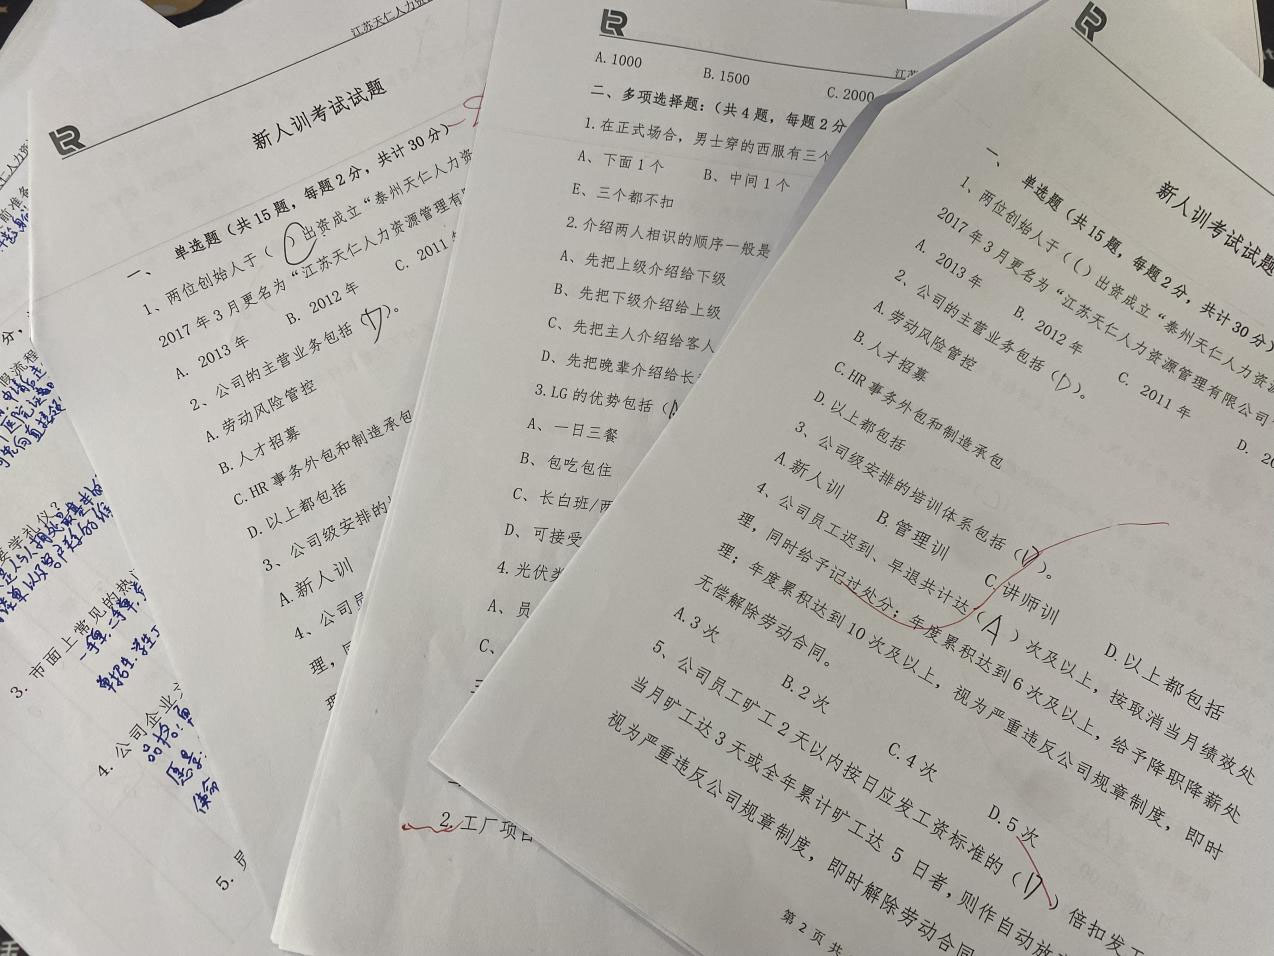 江苏天仁人力资
新人训考试试题
一、 单选题（共15题，每题2分，共计30分）
1、两位创始人于（C）出资成立“泰州天仁人力资
2017年3月更名为“江苏天仁人力资源管理有
A. 2013年 B. 2012年 C. 2011
2、公司的主营业务包括（D）。
A.劳动风险管控
B.人才招募
C.HR事务外包和制造承包
D.以上都包括
3、公司级安排的
A.新人训
4、公司员
理，
A.1000 B.1500 C.2000
二、多项选择题：（共4题，每题2分
1.在正式场合，男士穿的西服有三个
A、下面1个 B、中间1个
E、三个都不扣
2.介绍两人相识的顺序一般是
A、先把上级介绍给下级
B、先把下级介绍给上级
C、先把主人介绍给客人
D、先把晚辈介绍给长
3.LG的优势包括（
A、一日三餐
B、包吃包住
C、长白班/两
D、可接受
4.光伏类
A、员
C、
2.工厂项目
新人训考试试题
一、 单选题（共15题，每题2分，共计30分）
1、两位创始人于（C）出资成立“泰州天仁人力资源
2017年3月更名为“江苏天仁人力资源管理有限公司
A. 2013年 B. 2012年 C. 2011年 D. 20
2、公司的主营业务包括（D）。
A.劳动风险管控
B.人才招募
C.HR事务外包和制造承包
D.以上都包括
3、公司级安排的培训体系包括（D）。
A.新人训 B.管理训 C.讲师训 D.以上都包括
4、公司员工迟到、早退共计达（A）次及以上，按取消当月绩效处
理，同时给予记过处分；年度累积达到6次及以上，给予降职降薪处
理；年度累积达到10次及以上，视为严重违反公司规章制度，即时
无偿解除劳动合同。
A.3次 B.2次 C.4次 D.5次
5、公司员工旷工2天以内按日应发工资标准的（D）倍扣发工
当月旷工达3天或全年累计旷工达5日者，则作自动放
视为严重违反公司规章制度，即时解除劳动合同
第2页 共
前准备
假流程
要学礼仪？
3. 市面上常见的热门
4. 公司企业文
5. 员